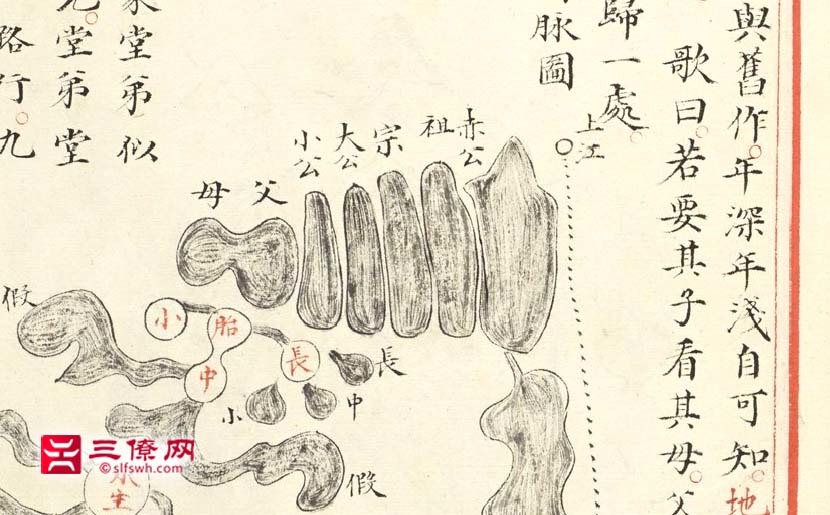 與舊作年深年淺自可知地
歌曰若要其子看其母父
歸一處
脉圖
上江
赤公
祖
宗
大公
小公
父
母
堂弟似
堂弟堂
路行九
假
小
胎
中
長
長
中
小
假
三僚网
slfswh.com